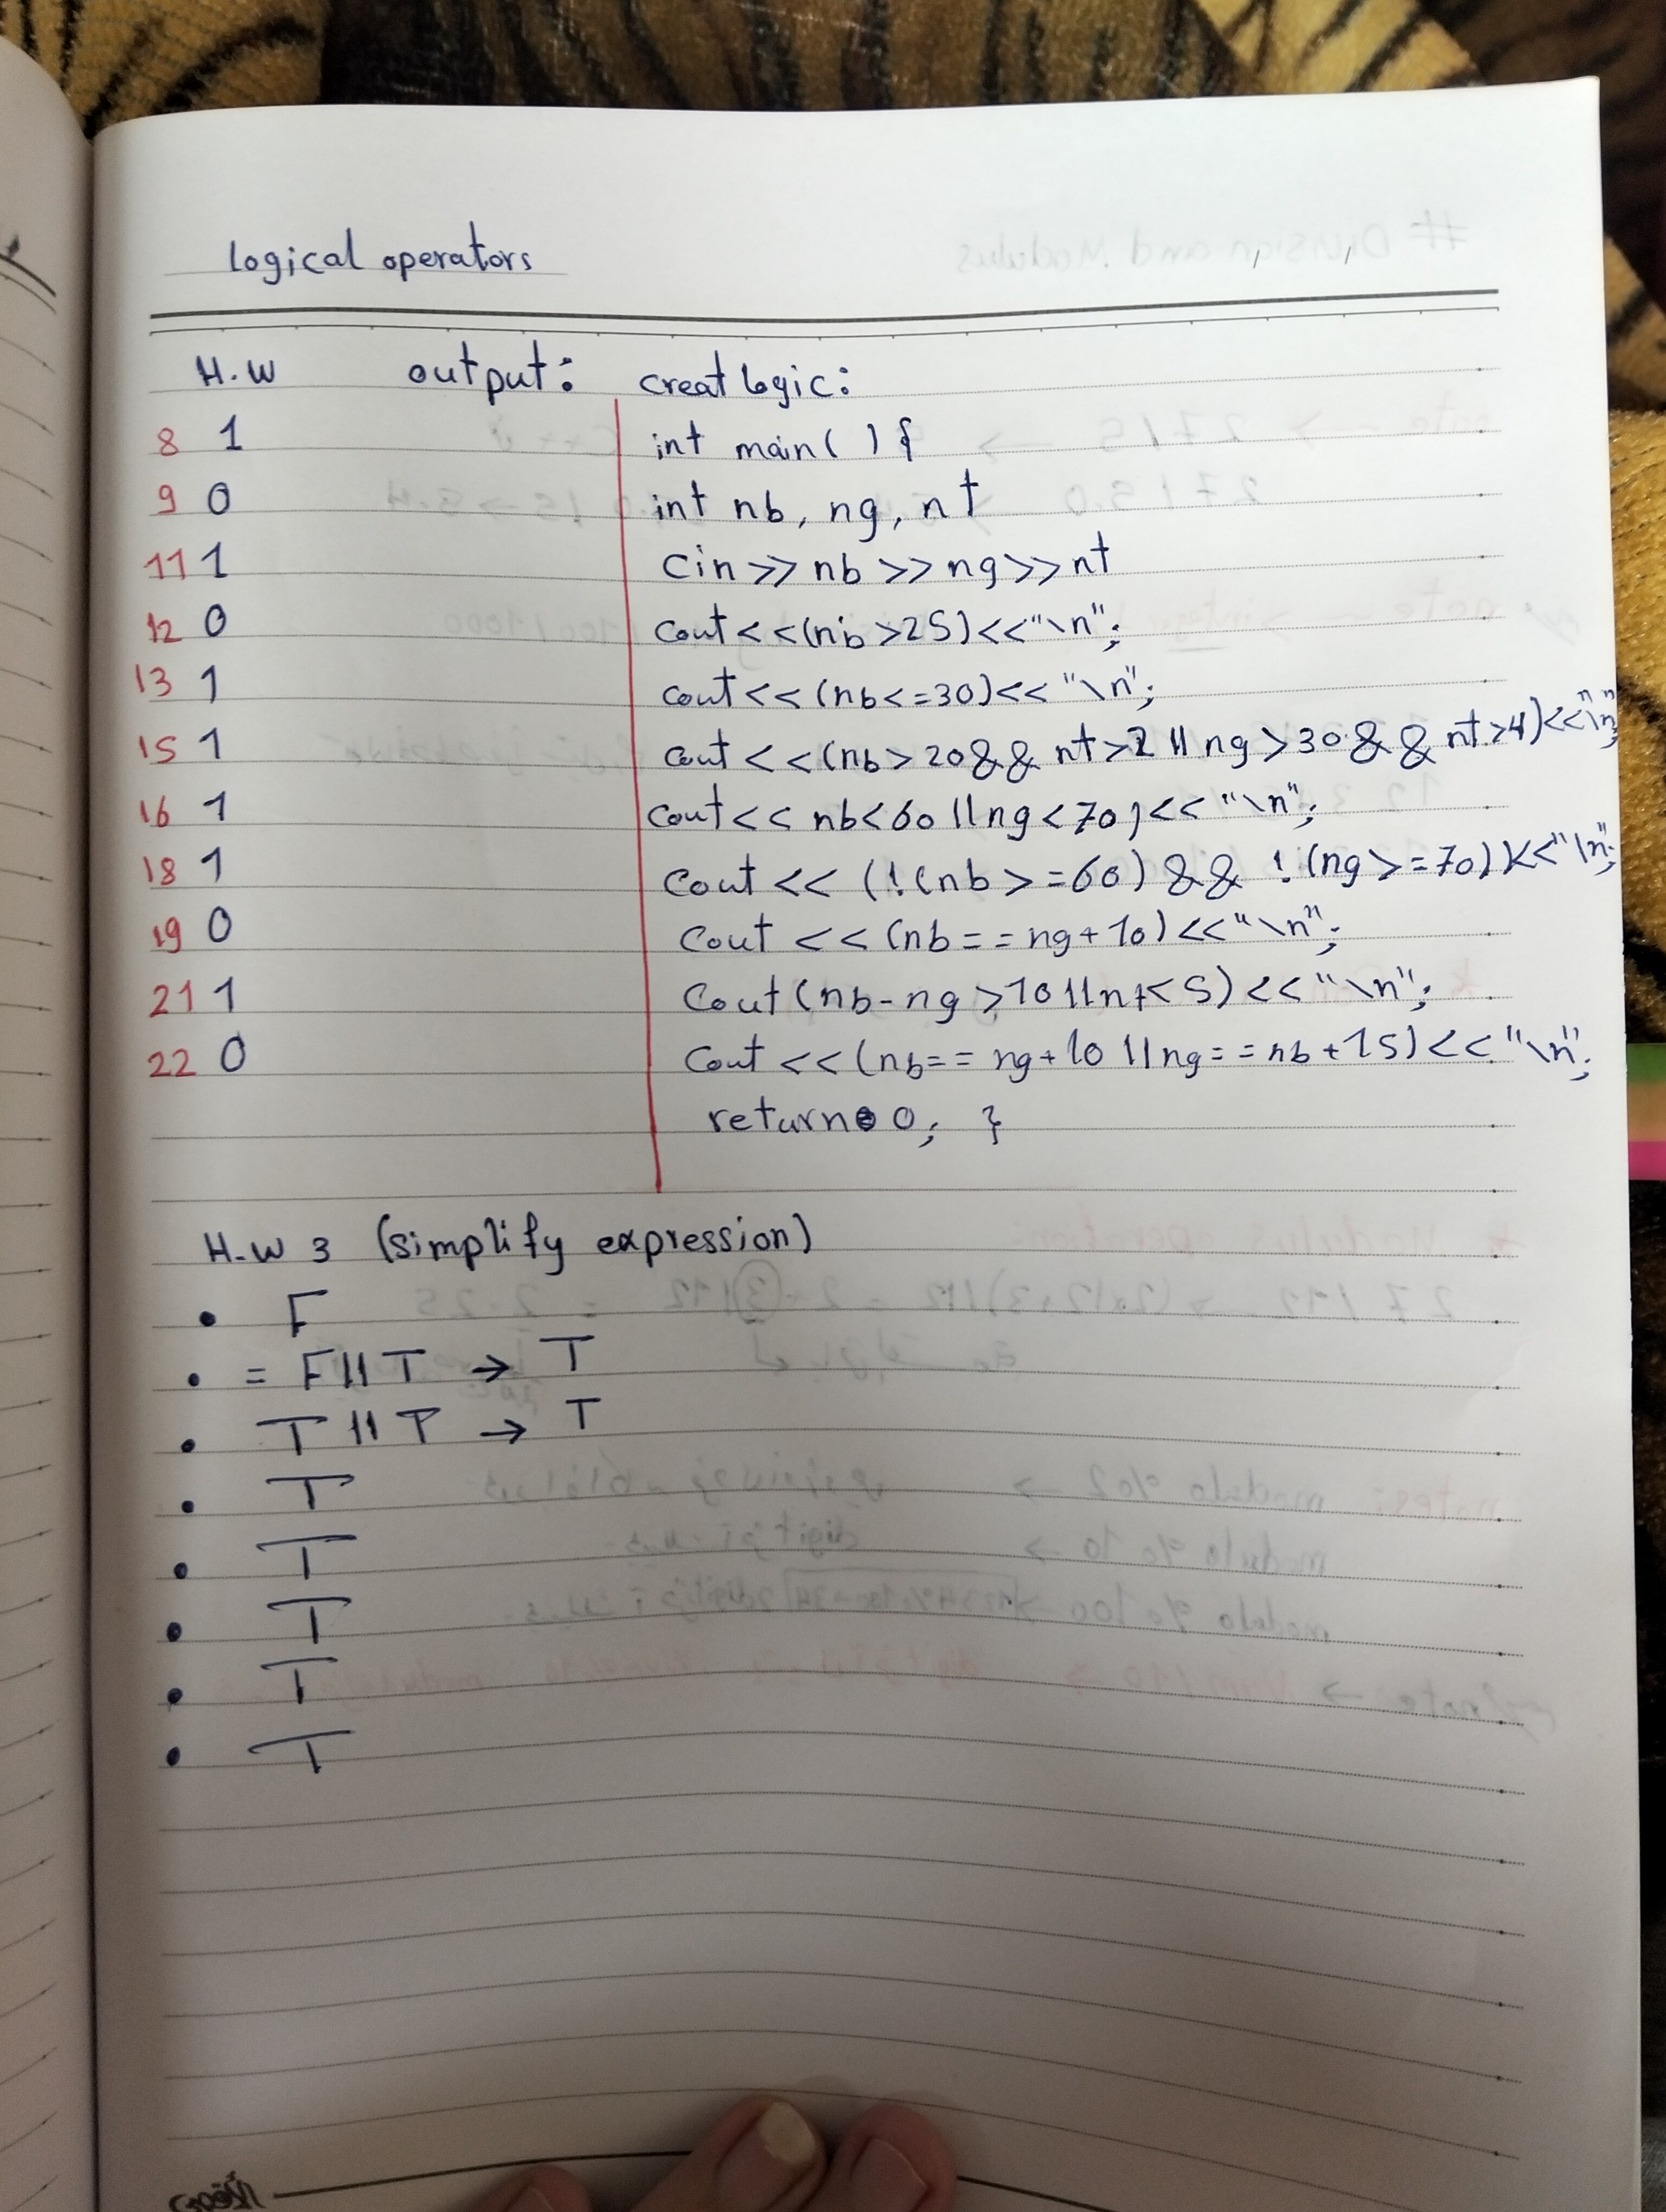 Logical operators
H.W output: creat logic:
8 1 int main( ) {
9 0 int nb, ng, nt
11 1 Cin >> nb >> ng >> nt
12 0 Cout << (nb > 25) << "\n";
13 1 cout << (nb <= 30) << "\n";
15 1 cout << (nb > 20 && nt > 2 || ng > 30 && nt > 4) << "\n";
16 1 Cout << nb < 60 || ng < 70 ) << "\n";
18 1 Cout << (! (nb >= 60) && ! (ng >= 70)) << "\n";
19 0 Cout << (nb == ng + 10) << "\n";
21 1 Cout (nb - ng > 10 || nt < 5) << "\n";
22 0 Cout << (nb == ng + 10 || ng == nb + 15) << "\n";
return 0; }
H.W 3 (simplify expression)
• F
• = F || T → T
• T || T → T
• T
• T
• T
• T
• T